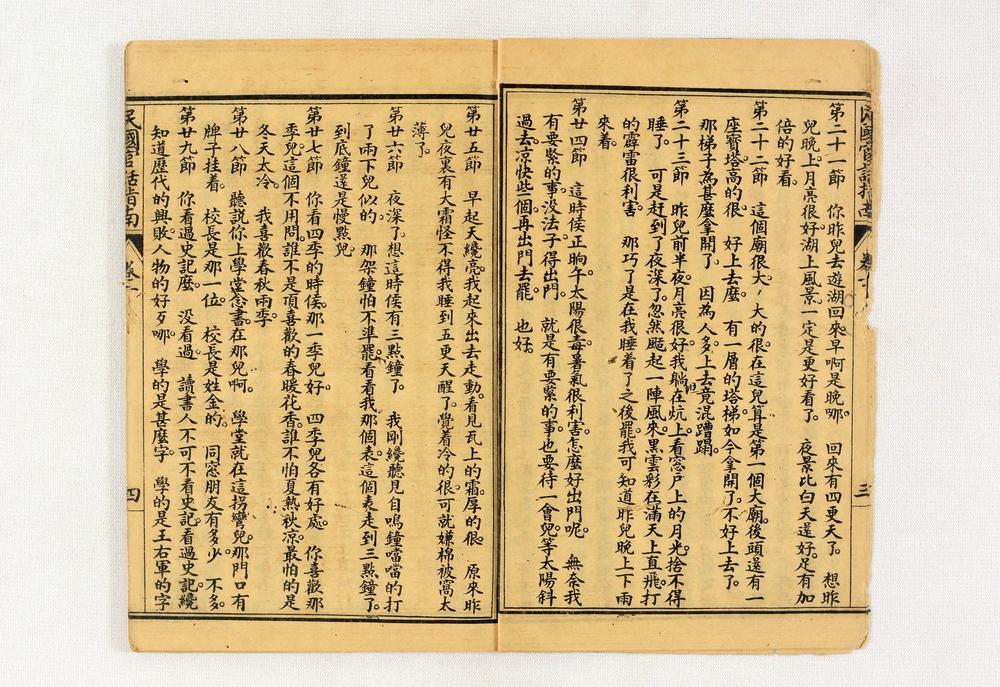 民國官話指南
卷一
三
第二十一節　你昨兒去遊湖回來。早啊是晚哪。　回來有四更天了。　想昨
兒晚上月亮很好。湖上風景一定是更好看了。　夜景比白天還好。足有加
倍的好看。
第二十二節　這個廟很大，大的很。在這兒算是第一個大廟。後頭還有一
座寶塔高的很。　好上去麼。　有一層的塔梯。如今拿開了。不好上去了。
那梯子為甚麼拿開了　因為人多。上去竟混蹧蹋。
第二十三節　昨兒前半夜。月亮很好。我躺在炕上。看窓戶上的月光。捨不得
睡了。　可是赶到了夜深了。忽然颳起一陣風來。黑雲彩在滿天上直飛。打
的霹雷很利害。　那巧了是在我睡着了之後罷。我可知道昨兒晚上下雨
來着。
第廿四節　這時侯正晌午。太陽很毒。暑氣很利害。怎麼好出門呢。　無奈我
有要緊的事。没法子得出門。　就是有要緊的事。也要待一會兒。等太陽斜
過去。凉快些個。再出門去罷。　也好。
第廿五節　早起天纔亮。我起來出去走動。看見瓦上的霜厚的很。　原來昨
兒夜裏有大霜。怪不得我睡到五更天醒了。覺着冷的很。可就嫌棉被窩太
薄了。
第廿六節　夜深了。想這時侯有三點鐘了。　我剛纔聽見自鳴鐘噹噹的打
了兩下兒似的。　那架鐘怕不準罷。看看我那個表。這個表走到三點鐘了。
到底鐘還是慢點兒。
第廿七節　你看四季的時侯。那一季兒好。　四季兒各有好處。　你喜歡那
季兒。這個不用問。誰不是頂喜歡的春暖花香。誰不怕夏熱秋凉。最怕的是
冬天太冷。　我喜歡春秋兩季。
第廿八節　聽説你上學堂念書。在那兒啊。　學堂就在這拐彎兒。那門口有
牌子挂着。　校長是那一位。　校長是姓金的。　同窓朋友有多少。　不多。
第廿九節　你看過史記麼。　没看過。　讀書人不可不看史記。看過史記。纔
知道歷代的興敗。人物的好歹哪。　學的是甚麼字。　學的是王右軍的字
民國官話指南
卷一
四